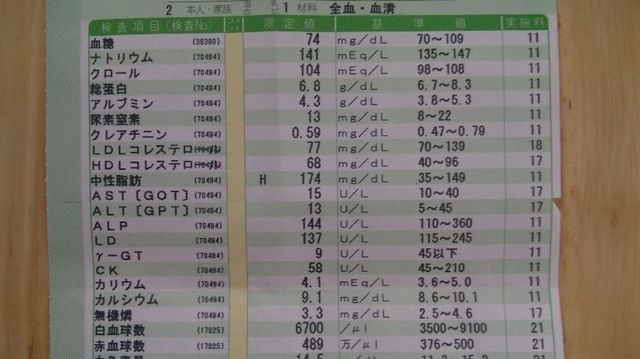 2 本人・家族 1 材料 全血・血清
検査項目(検査No) コメント 測定値 基準値 実施料
血糖 (38380) 74 mg/dL 70〜109 11
ナトリウム (70494) 141 mEq/L 135〜147 11
クロール (70494) 104 mEq/L 98〜108 11
総蛋白 (70494) 6.8 g/dL 6.7〜8.3 11
アルブミン (70494) 4.3 g/dL 3.8〜5.3 11
尿素窒素 (70494) 13 mg/dL 8〜22 11
クレアチニン (70494) 0.59 mg/dL 0.47〜0.79 11
LDLコレステロール (70494) 77 mg/dL 70〜139 18
HDLコレステロール (70494) 68 mg/dL 40〜96 17
中性脂肪 (70494) H 174 mg/dL 35〜149 11
AST[GOT] (70494) 15 U/L 10〜40 17
ALT[GPT] (70494) 13 U/L 5〜45 17
ALP (70494) 144 U/L 110〜360 11
LD (70494) 137 U/L 115〜245 11
γ-GT (70494) 9 U/L 45以下 11
CK (70494) 58 U/L 45〜210 11
カリウム (70494) 4.1 mEq/L 3.6〜5.0 11
カルシウム (70494) 9.1 mg/dL 8.6〜10.1 11
無機燐 (70494) 3.3 mg/dL 2.5〜4.6 17
白血球数 (17025) 6700 /μl 3500〜9100 21
赤血球数 (17025) 489 万/μl 376〜500 21